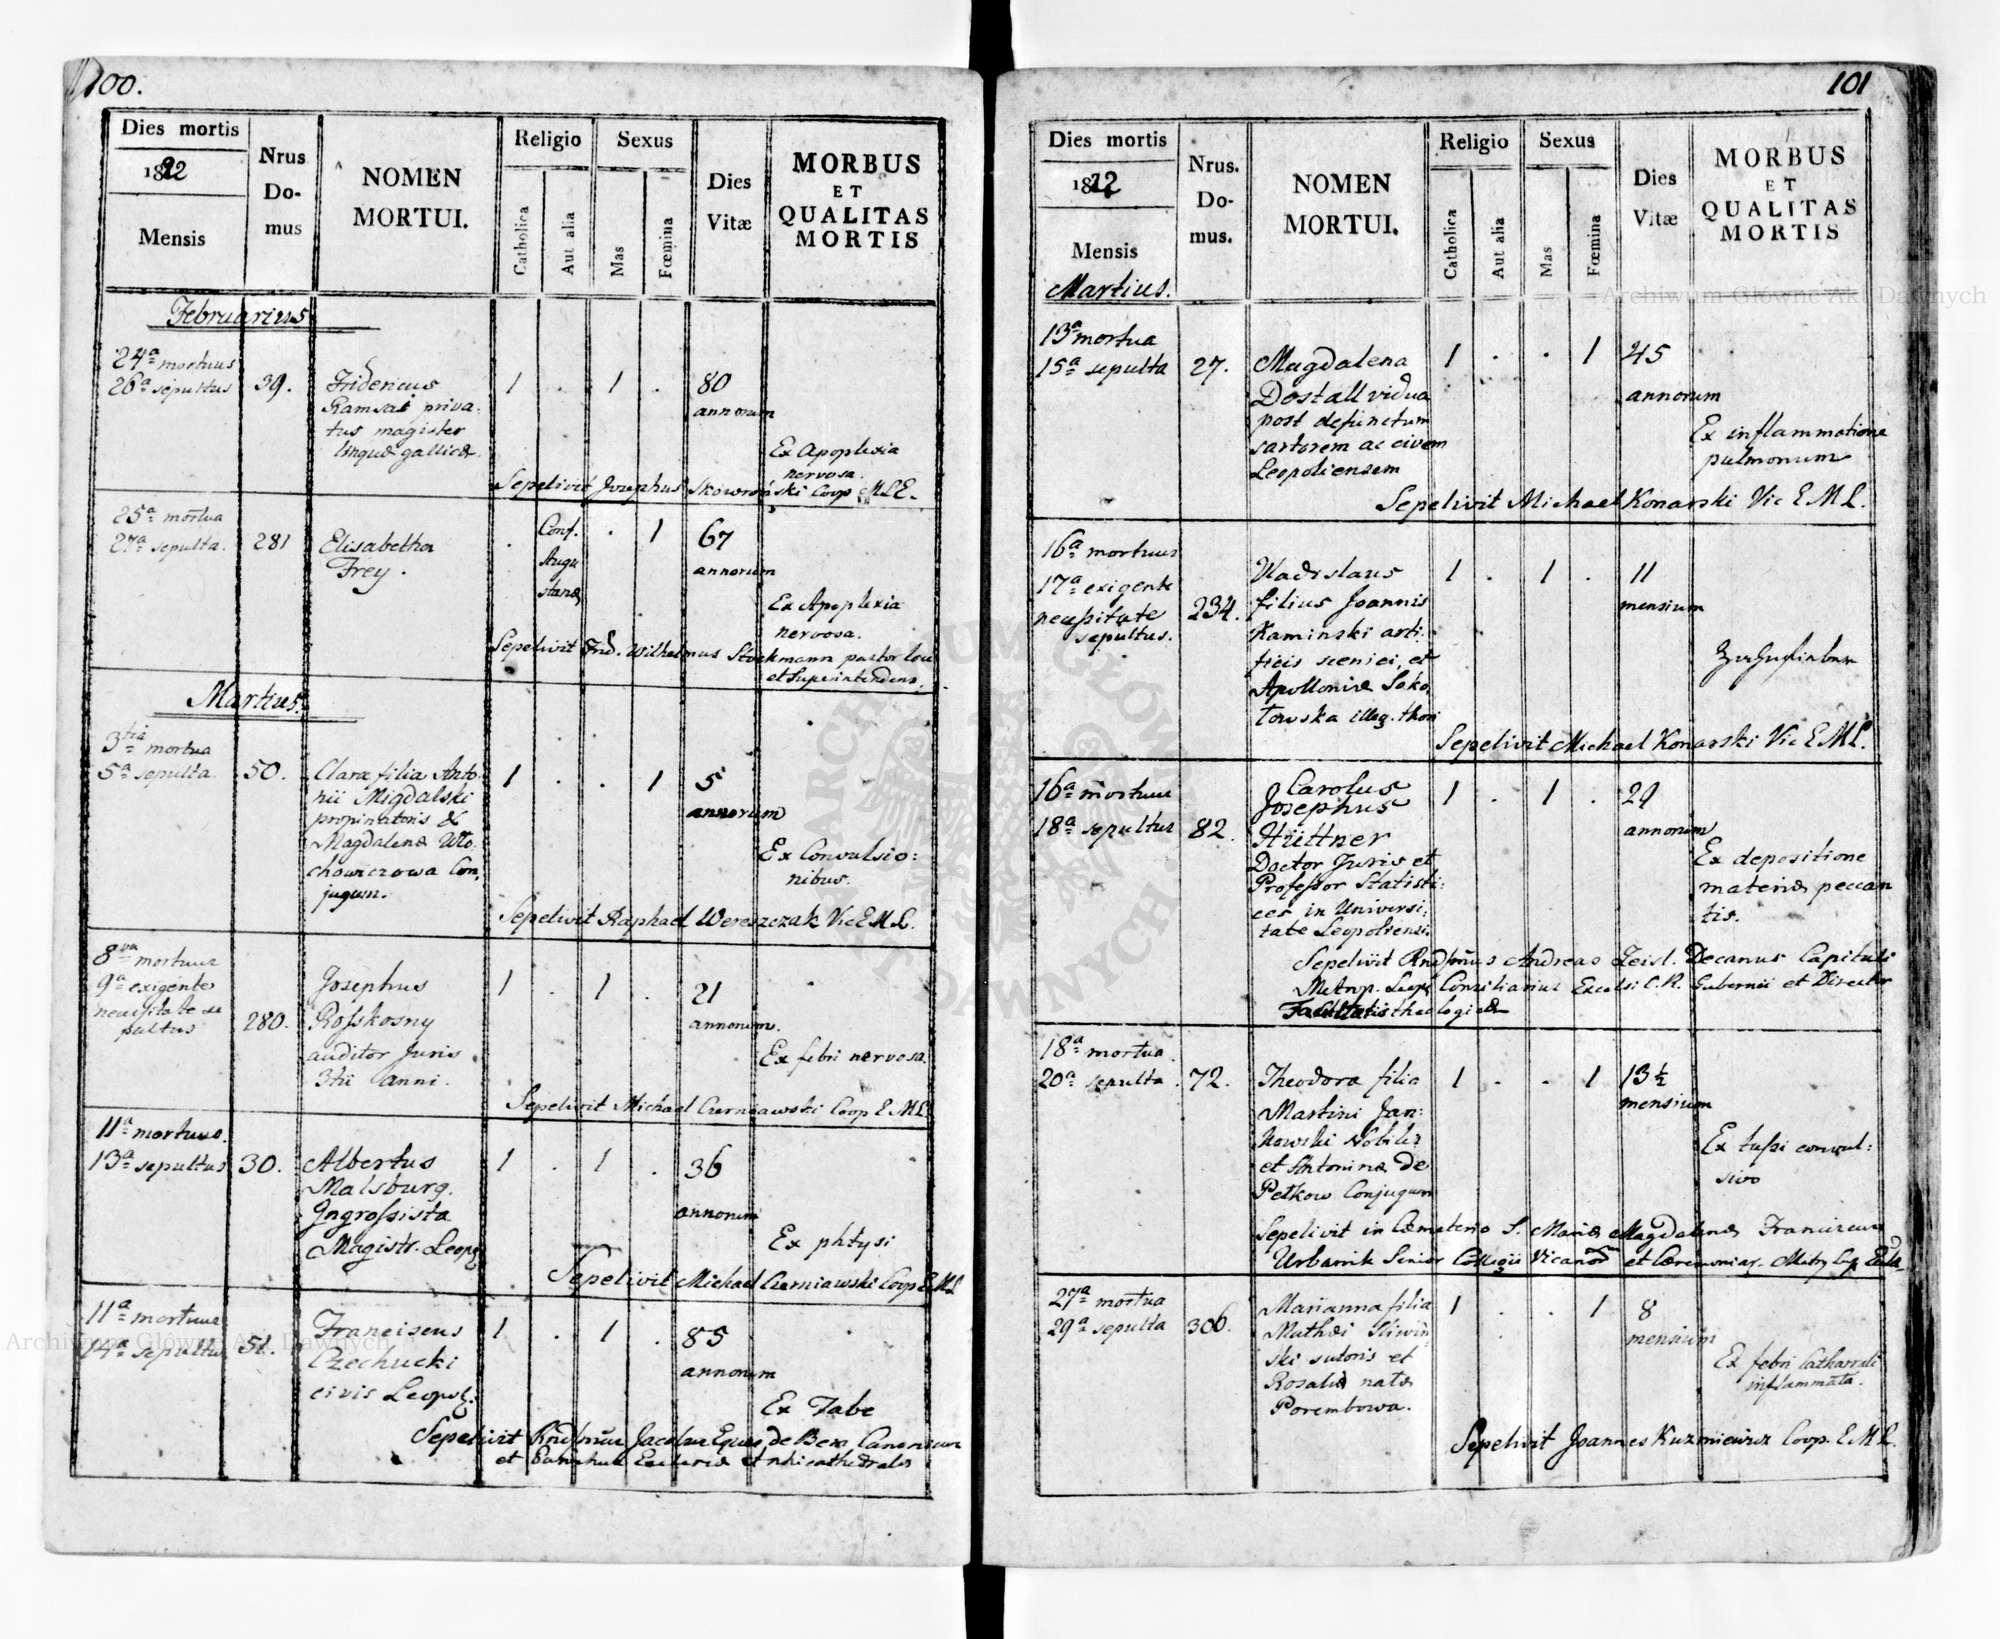 100.
Dies mortis
1822
Mensis
Nrus
Do-
mus
NOMEN
MORTUI.
Religio
Catholica
Aut alia
Sexus
Mas
Fœmina
Dies
Vitæ
MORBUS
ET
QUALITAS
MORTIS
Februarius
24a mortuus
26a sepultus 39. Fridericus 1 . 1 . 80
Ramsai priva- annorum
tus magister
linguæ gallicæ. Ex Apoplexia
nervosa.
Sepelivit Josephus Skowroński Coop EMLE.
25a mortua
27a sepulta. 281 Elisabetha . Conf. . 1 67
Frey. Augu annorum
stanæ
Ex Apoplexia
nervosa.
Sepelivit Frid. Wilhelmus Stockmann pastor loci
et Superintendens.
Martius.
3tia mortua
5a sepulta. 50. Clara filia Anto- 1 . . 1 5
nii Migdalski
propinatoris & annorum
Magdalenæ Wło-
chowiczowa Con- Ex Convulsio:
jugum. nibus.
Sepelivit Raphael Wereszczak Vic EML.
8va mortuus
9a exigente Josephus 1 . 1 . 21
necessitate se
pultus 280. Rosskosny annorum.
auditor Juris Ex febri nervosa.
3tii anni.
Sepelivit Michael Czerniawski Coop EML
11a mortuus.
13a sepultus 30. Albertus 1 . 1 . 36
Malsburg.
Ingrossista annorum
Magistr. Leopol. Ex phtysi
Sepelivit Michael Czerniawski Coop EML
11a mortuus
14a sepultus 51. Franciscus 1 . 1 . 85
Czechucki annorum
civis Leopol:
Ex Tabe
Sepelivit Rndssimus Jacobus Eques de Bem Canonicus
et Parochus Ecclesiæ
101
Dies mortis
1822
Mensis
Nrus.
Do-
mus.
NOMEN
MORTUI.
Religio
Catholica
Aut alia
Sexus
Mas
Fœmina
Dies
Vitæ
MORBUS
ET
QUALITAS
MORTIS
Martius.
13a mortua
15a sepulta 27. Magdalena 1 . . 1 45
Dostall vidua annorum
post defunctum Ex inflammatione
sartorem ac civem pulmonum
Leopoliensem
Sepelivit Michael Konarski Vic EML.
16a mortuus
17a exigente Vladislaus 1 . 1 . 11
necessitate 234. filius Joannis mensium
sepultus. Kaminski arti-
ficis scenici, et
Apolloniæ Soko-
łowska illeg. thori
Sepelivit Michael Konarski Vic EML.
16a mortuus Carolus 1 . 1 . 29
18a sepultus 82. Josephus
Hüttner annorum
Doctor Juris et Ex depositione
Professor Statisti- materiæ peccan
ces in Universi- tis.
tate Leopoliensi.
Sepelivit Rndssimus Andreas Zeisl. Decanus Capituli
Metrop. Leop. Consiliarius Excelsi C.R. Gubernii et Director
Facultatis theologicæ
18a mortua
20a sepulta. 72. Theodora filia 1 . . 1 13 ½
Martini Jan: mensium
kowski Nobilis Ex tussi convul:
et Antoninæ de sivo
Petkow Conjugum
Sepelivit in Cœmeterio S. Mariæ Magdalenæ Franciscus
Urbanik Senior Collegii Vicariorum et Cæremoniar.
27a mortua
29a sepulta 306. Marianna filia 1 . . 1 8
Mathæi Sliwiń- mensium
ski sutoris et Ex febri Catharrali
Rosaliæ natæ inflammata.
Porembowa.
Sepelivit Joannes Kuzmiewicz Coop. EML.
Archiwum Główne Akt Dawnych
Archiwum Główne Akt Dawnych
ARCHIWUM GŁÓWNE AKT DAWNYCH